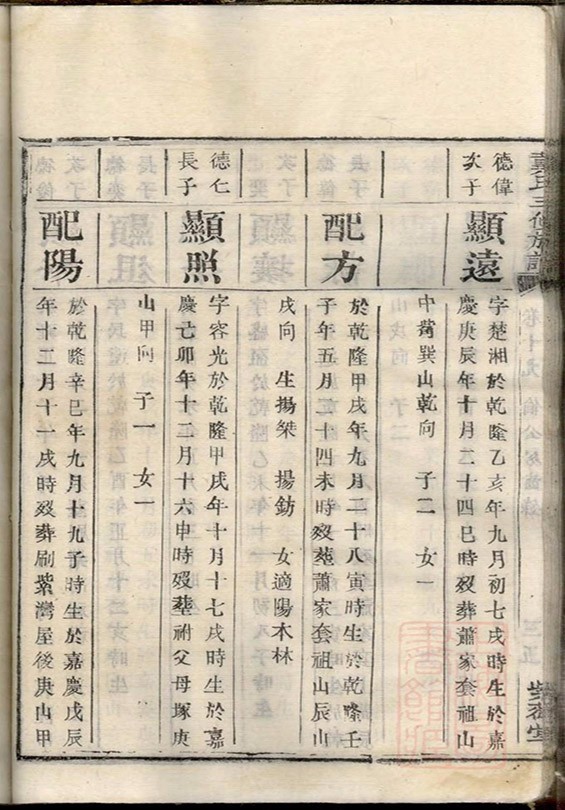 卷十九
三五
德偉
次子
顯遠
字楚湘於乾隆乙亥年九月初七戌時生於嘉
慶庚辰年十月二十四巳時歿葬蕭家套祖山
中嵩巽山乾向 子二 女一
配方
於乾隆甲戌年九月二十八寅時生於乾隆壬
子年五月二十四未時歿塟蕭家套祖山辰山
戌向 生揚榮 揚鈁 女適陽木林
德仁
長子
顯照
字容光於乾隆甲戌年十月十七戌時生於嘉
慶己卯年十二月十六申時歿塟祔父母塚庚
山甲向 子一 女一
配陽
於乾隆辛巳年九月十九子時生於嘉慶戊辰
年十二月十一戌時歿葬刷紫灣屋後庚山甲